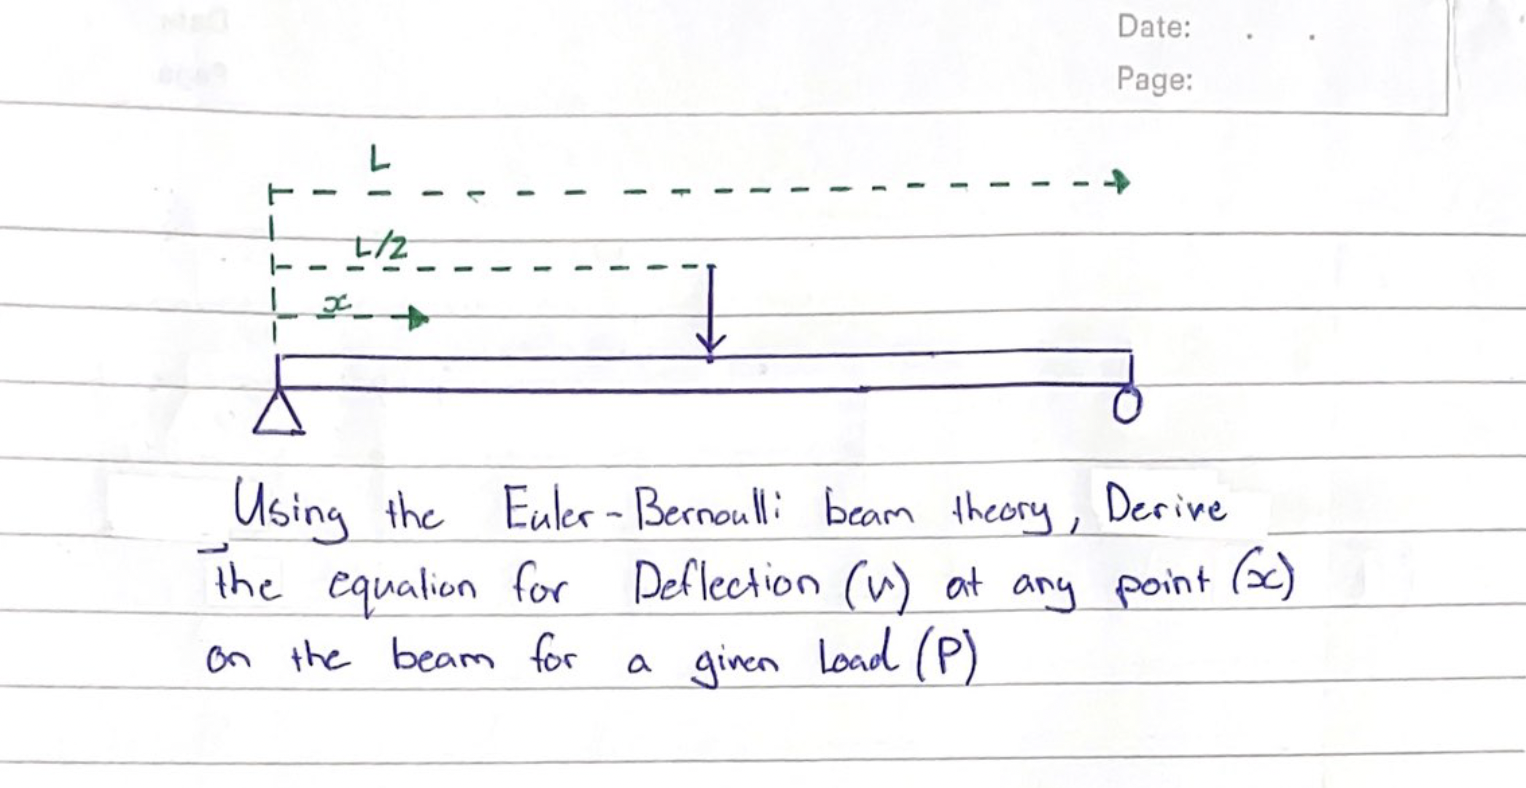 Date: . .
Page:
L
L/2
x
Using the Euler-Bernoulli beam theory, Derive
the equation for Deflection (v) at any point (x)
on the beam for a given Load (P)